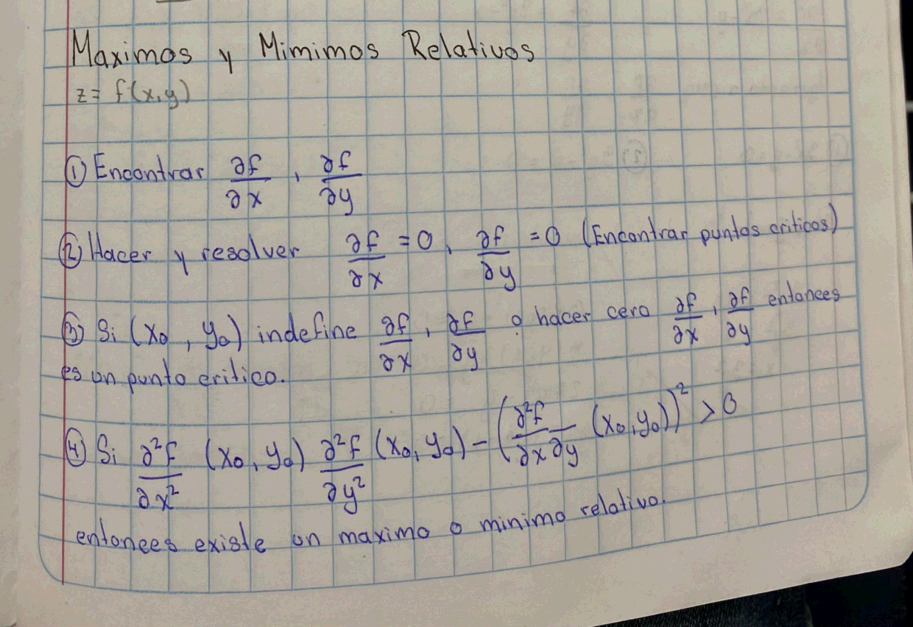 Maximos y Mimimos Relativos
z = f(x,y)
① Encontrar ∂f/∂x , ∂f/∂y
② Hacer y resolver ∂f/∂x = 0, ∂f/∂y = 0 (Encontrar puntos criticos)
③ Si (x₀, y₀) indefine ∂f/∂x, ∂f/∂y o hacer cero ∂f/∂x, ∂f/∂y entonces
es un punto critico.
④ Si ∂²f/∂x² (x₀, y₀) ∂²f/∂y² (x₀, y₀) - (∂²f/∂x∂y (x₀, y₀))² > 0
entonces existe un maximo o minimo relativo.